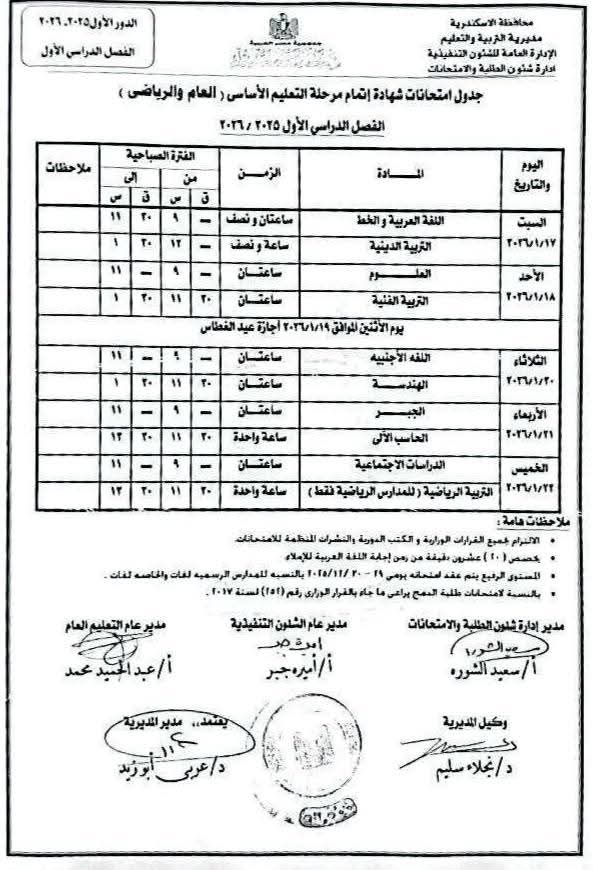 محافظة الاسكندرية
مديرية التربية والتعليم
الإدارة العامة للشئون التنفيذية
ادارة شئون الطلبة والامتحانات
الدور الأول ٢٠٢٥-٢٠٢٦
الفصل الدراسي الأول
جدول امتحانات شهادة إتمام مرحلة التعليم الأساسى ( العام والرياضى )
الفصل الدراسي الأول ٢٠٢٥ / ٢٠٢٦
اليوم والتاريخ المادة الزمن الفترة الصباحية ملاحظات
من إلى
ق س ق س
السبت ٢٠٢٦/١/١٧ اللغة العربية و الخط ساعتان و نصف – ٩ ٣٠ ١١
التربية الدينية ساعة و نصف – ١٢ ٣٠ ١
الأحد ٢٠٢٦/١/١٨ العلوم ساعتان – ٩ – ١١
التربية الفنية ساعتان ٣٠ ١١ ٣٠ ١
يوم الأثنين الموافق ٢٠٢٦/١/١٩ أجازة عيد الغطاس
الثلاثاء ٢٠٢٦/١/٢٠ اللغه الأجنبيه ساعتان – ٩ – ١١
الهندسة ساعتان ٣٠ ١١ ٣٠ ١
الأربعاء ٢٠٢٦/١/٢١ الجبر ساعتان – ٩ – ١١
الحاسب الألى ساعة واحدة ٣٠ ١١ ٣٠ ١٢
الخميس ٢٠٢٦/١/٢٢ الدراسات الاجتماعية ساعتان – ٩ – ١١
التربية الرياضية ( للمدارس الرياضية فقط ) ساعة واحدة ٣٠ ١١ ٣٠ ١٢
ملاحظات هامة :
• الالتزام بجميع القرارات الوزارية و الكتب الدورية والنشرات المنظمة للامتحانات.
• يخصص (٢٠) عشرون دقيقة من زمن إجابة اللغة العربية للإملاء.
• المستوى الرفيع يتم عقد امتحانه يومى ٢٩ - ٣٠ /٢٠٢٥/١٢ بالنسبه للمدارس الرسميه لغات والخاصه لغات .
• بالنسبة لامتحانات طلبة الدمج يراعى ما جاء بالقرار الوزارى رقم (٢٥٢) لسنة ٢٠١٧ .
مدير إدارة شئون الطلبة والامتحانات
أ/ سعيد الشوره
مدير عام الشئون التنفيذية
أ/ أميره جبر
مدير عام التعليم العام
أ/ عبد الحميد محمد
وكيل المديرية
د/ نجلاء سليم
يعتمد،، مدير المديرية
د/ عربى أبو زيد